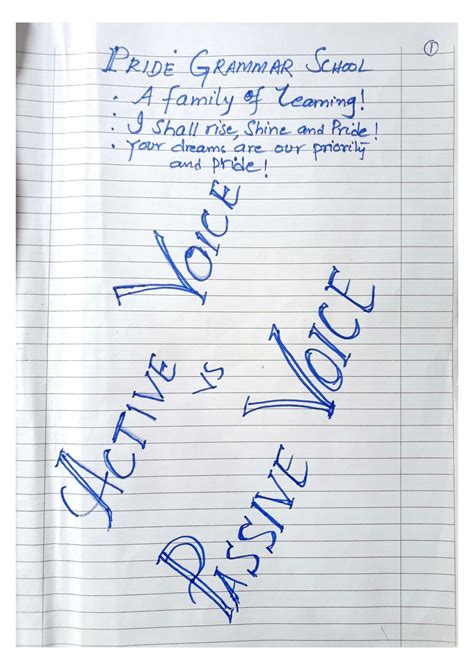 ①
PRIDE GRAMMAR SCHOOL
. A family of Learning!
. I Shall rise, Shine and Pride!
. Your dreams are our priority
and pride!
ACTIVE VOICE
VS
PASSIVE VOICE